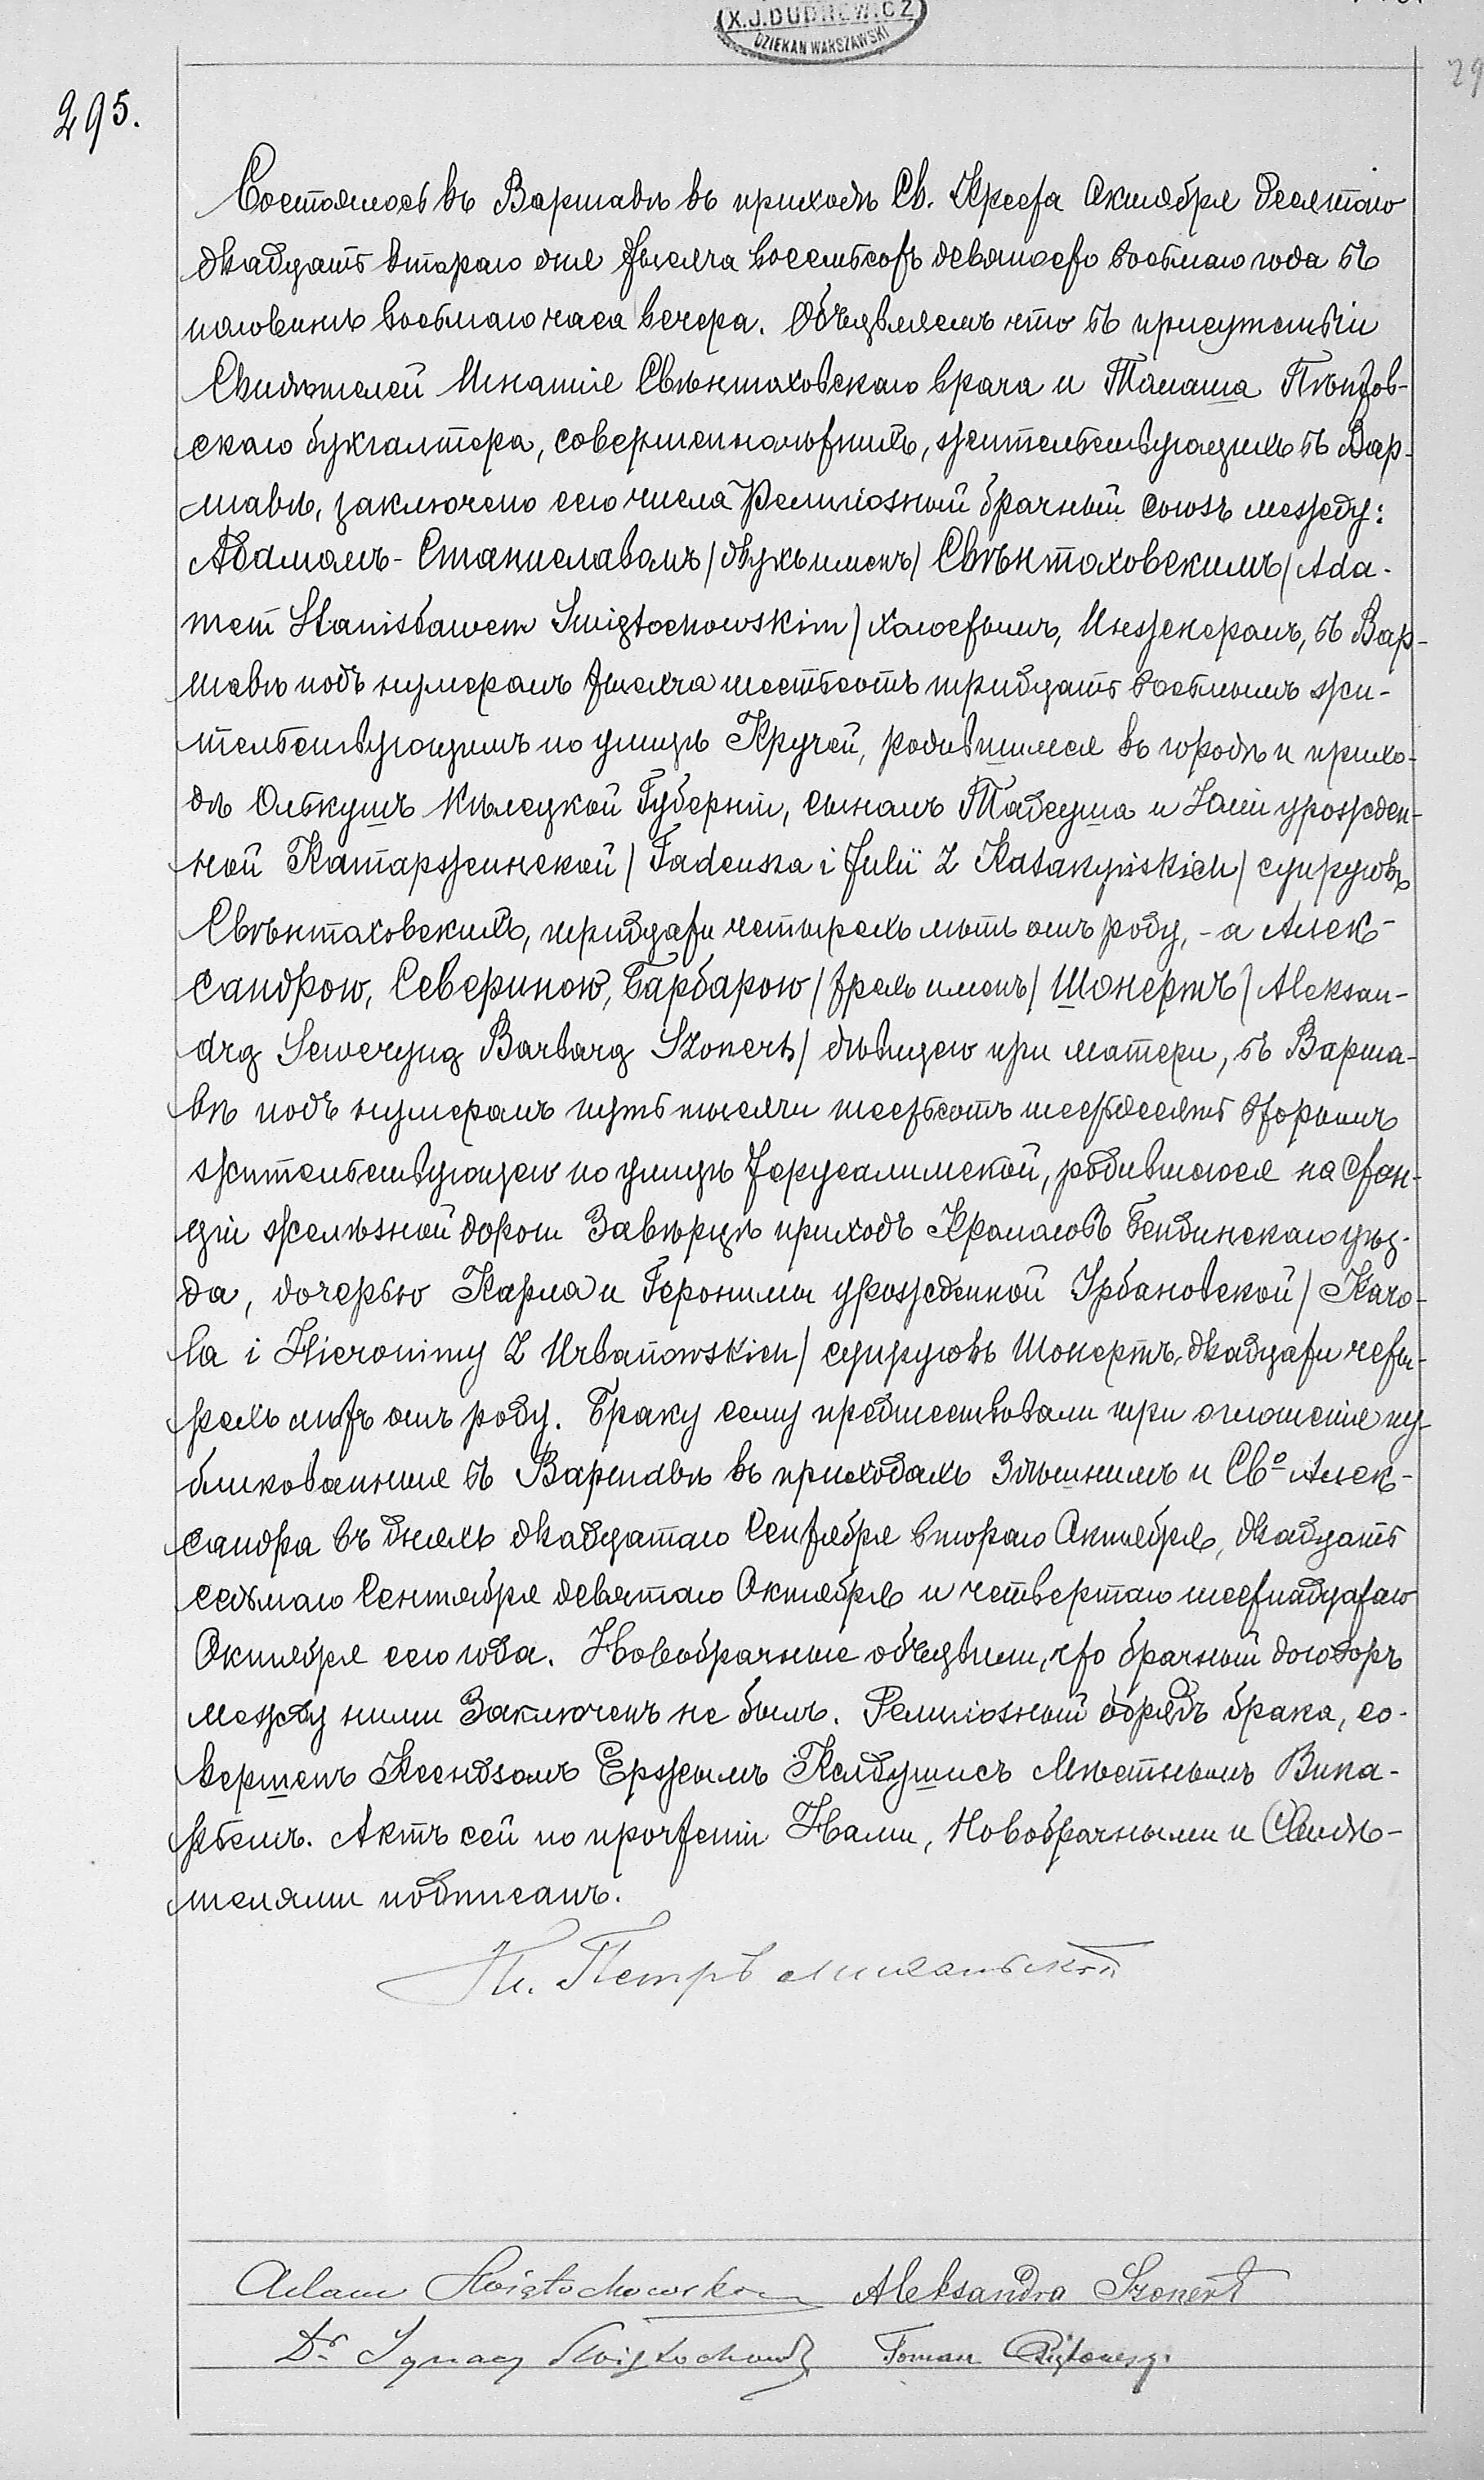 X.J.DUDREWICZ
DZIEKAN WARSZAWSKI
29
295.
Состоялось въ Варшавѣ въ приходѣ Св. Креста Октября десятаго
двадцать втораго дня тысяча восемьсотъ девяносто восьмаго года въ
половинѣ восьмаго часа вечера. Объявляемъ что въ присутствіи
Свидѣтелей Игнатія Свѣнтоховскаго врача и Томаша Пѣнтов-
скаго бухгалтера, совершеннолѣтнихъ, жительствующихъ въ Вар-
шавѣ, заключено сего числа Религіозный брачный союзъ между:
Адамомъ-Станиславомъ /двухъ именъ/ Свѣнтоховскимъ /Ada-
mem Stanisławem Świętochowskim/ холостымъ, Инженеромъ, въ Вар-
шавѣ подъ нумеромъ тысяча шестьсотъ тридцать восьмымъ жи-
тельствующимъ по улицѣ Кручей, родившимся въ городѣ и прихо-
дѣ Олькушъ Кѣлецкой Губерніи, сыномъ Тадеуша и Юліи урожден-
ной Катаржинской /Tadeusza i Julii z Katarzyńskich/ супруговъ
Свѣнтоховскихъ, тридцати четырехъ лѣтъ отъ роду, - а Алек-
сандрою, Севериною, Барбарою /трехъ именъ/ Шонертъ /Aleksan-
drą Seweryną Barbarą Szonert/ дѣвицею при матери, въ Варша-
вѣ подъ нумеромъ пять тысячи шестьсотъ шестьдесятъ вторымъ
жительствующею по улицѣ Іерусалимской, родившеюся на стан-
ціи желѣзной дороги Завѣрце приходъ Кромоловъ Бендинскаго уѣз-
да, дочерью Карла и Геронимы урожденной Урбановской /Karo-
la i Hieronimy z Urbanowskich/ супруговъ Шонертъ, двадцати четы-
рехъ лѣтъ отъ роду. Браку сему предшествовали три оглашенія пу-
бликованныя въ Варшавѣ въ приходахъ здѣшнимъ и Свº Алек-
сандра въ дняхъ двадцатаго Сентября втораго Октября, двадцать
седьмаго Сентября девятаго Октября и четвертаго шестнадцатаго
Октября сего года. Новобрачные объявили, что брачный договоръ
между ними заключенъ не былъ. Религіозный обрядъ брака, со-
вершенъ Ксендзомъ Ержимъ Келдушисъ Мѣстнымъ Вика-
ріемъ. Актъ сей по прочтеніи Нами, Новобрачными и Свидѣ-
телями подписанъ.
Петръ
Adam Świętochowski Aleksandra Szonert
Dr Ignacy Świętochowski Tomasz